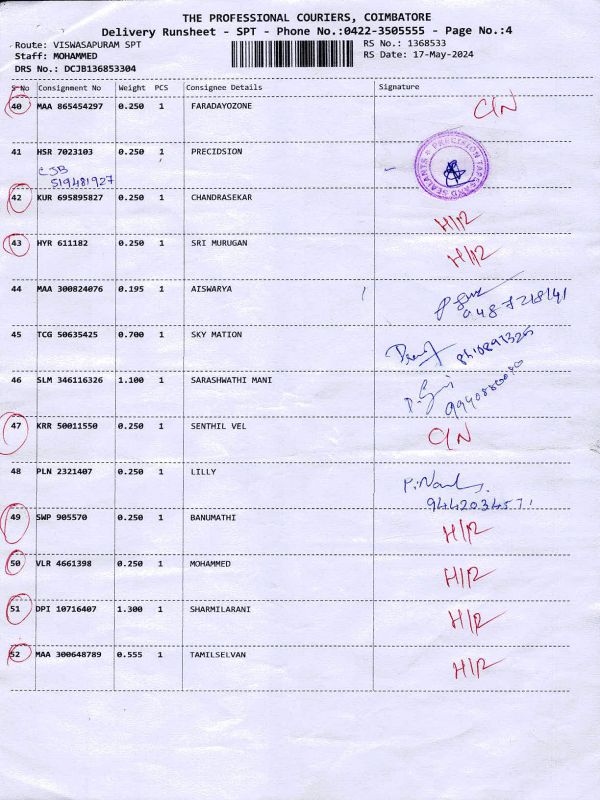 THE PROFESSIONAL COURIERS, COIMBATORE
Delivery Runsheet - SPT - Phone No.:0422-3505555 - Page No.:4
Route: VISWASAPURAM SPT RS No.: 1368533
Staff: MOHAMMED RS Date: 17-May-2024
DRS No.: DCJB136853304
S No Consignment No Weight PCS Consignee Details Signature
40 MAA 865454297 0.250 1 FARADAYOZONE C/N
41 HSR 7023103 0.250 1 PRECIDSION
CJB
519481927
PRECISION TAPES AND SEALANTS
42 KUR 695895827 0.250 1 CHANDRASEKAR H/R
43 HYR 611182 0.250 1 SRI MURUGAN H/R
44 MAA 300824076 0.195 1 AISWARYA
45 TCG 50635425 0.700 1 SKY MATION
46 SLM 346116326 1.100 1 SARASHWATHI MANI
47 KRR 50011550 0.250 1 SENTHIL VEL C/N
48 PLN 2321407 0.250 1 LILLY
9442034571
49 SWP 905570 0.250 1 BANUMATHI H/R
50 VLR 4661398 0.250 1 MOHAMMED H/R
51 DPI 10716407 1.300 1 SHARMILARANI H/R
52 MAA 300648789 0.555 1 TAMILSELVAN H/R